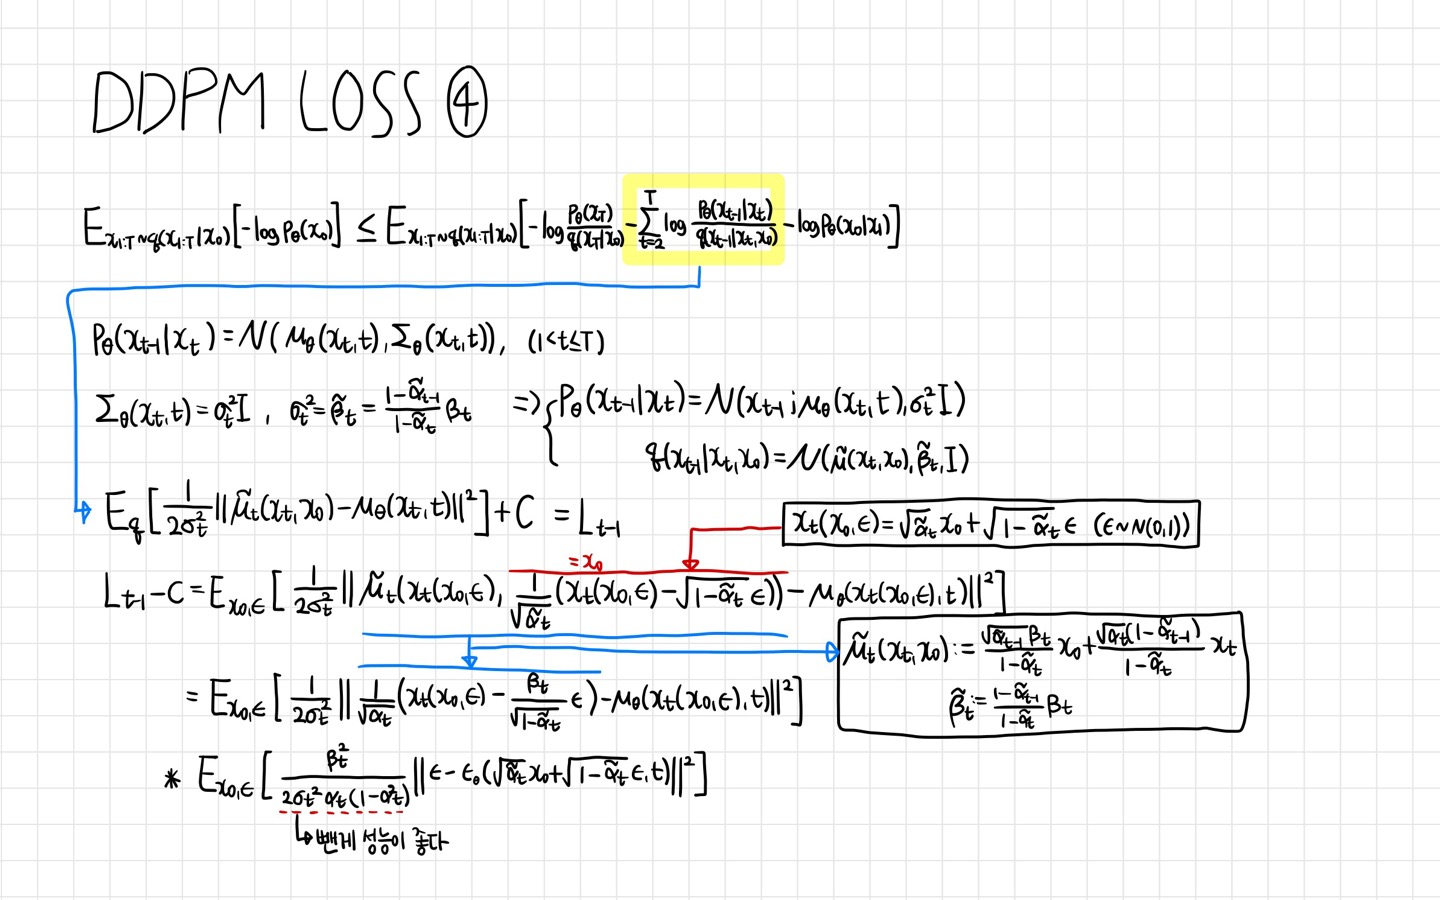 DDPM LOSS ④
E_{x_{1:T}~q(x_{1:T}|x_0)}[-log P_θ(x_0)] ≤ E_{x_{1:T}~q(x_{1:T}|x_0)}[-log \frac{P_θ(x_T)}{q(x_T|x_0)} - \sum_{t=2}^{T} log \frac{P_θ(x_{t-1}|x_t)}{q(x_{t-1}|x_t,x_0)} - log P_θ(x_0|x_1)]
P_θ(x_{t-1}|x_t) = N(μ_θ(x_t,t), Σ_θ(x_t,t)), (1<t≤T)
Σ_θ(x_t,t) = σ_t^2 I , σ_t^2 = \tilde{β}_t = \frac{1-\tilde{α}_{t-1}}{1-\tilde{α}_t} β_t => { P_θ(x_{t-1}|x_t) = N(x_{t-1}; μ_θ(x_t,t), σ_t^2 I)
q(x_{t-1}|x_t,x_0) = N(\tilde{μ}(x_t,x_0), \tilde{β}_t, I)
E_q[\frac{1}{2σ_t^2} ||\tilde{μ}_t(x_t,x_0) - μ_θ(x_t,t)||^2] + C = L_{t-1}
x_t(x_0,ε) = \sqrt{\tilde{α}_t} x_0 + \sqrt{1-\tilde{α}_t} ε (ε~N(0,1))
= x_0
L_{t-1} - C = E_{x_0,ε}[\frac{1}{2σ_t^2} ||\tilde{μ}_t(x_t(x_0,ε), \frac{1}{\sqrt{\tilde{α}_t}}(x_t(x_0,ε) - \sqrt{1-\tilde{α}_t} ε)) - μ_θ(x_t(x_0,ε),t)||^2]
\tilde{μ}_t(x_t,x_0) := \frac{\sqrt{\tilde{α}_{t-1}} β_t}{1-\tilde{α}_t} x_0 + \frac{\sqrt{α_t}(1-\tilde{α}_{t-1})}{1-\tilde{α}_t} x_t
\tilde{β}_t := \frac{1-\tilde{α}_{t-1}}{1-\tilde{α}_t} β_t
= E_{x_0,ε}[\frac{1}{2σ_t^2} ||\frac{1}{\sqrt{α_t}}(x_t(x_0,ε) - \frac{β_t}{\sqrt{1-\tilde{α}_t}} ε) - μ_θ(x_t(x_0,ε),t)||^2]
* E_{x_0,ε}[\frac{β_t^2}{2σ_t^2 α_t(1-\tilde{α}_t)} ||ε - ε_θ(\sqrt{\tilde{α}_t} x_0 + \sqrt{1-\tilde{α}_t} ε, t)||^2]
뺀게 성능이 좋다